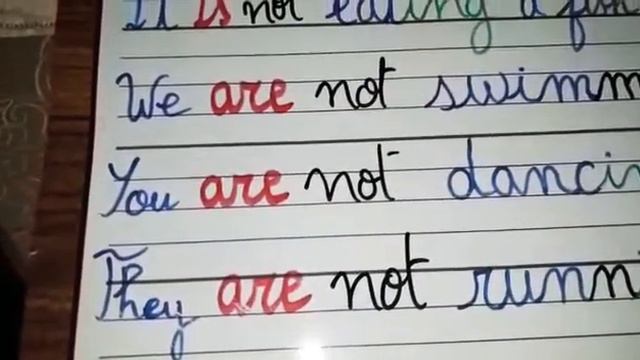 It is not eating a fish
We are not swimm
You are not dancin
They are not runni